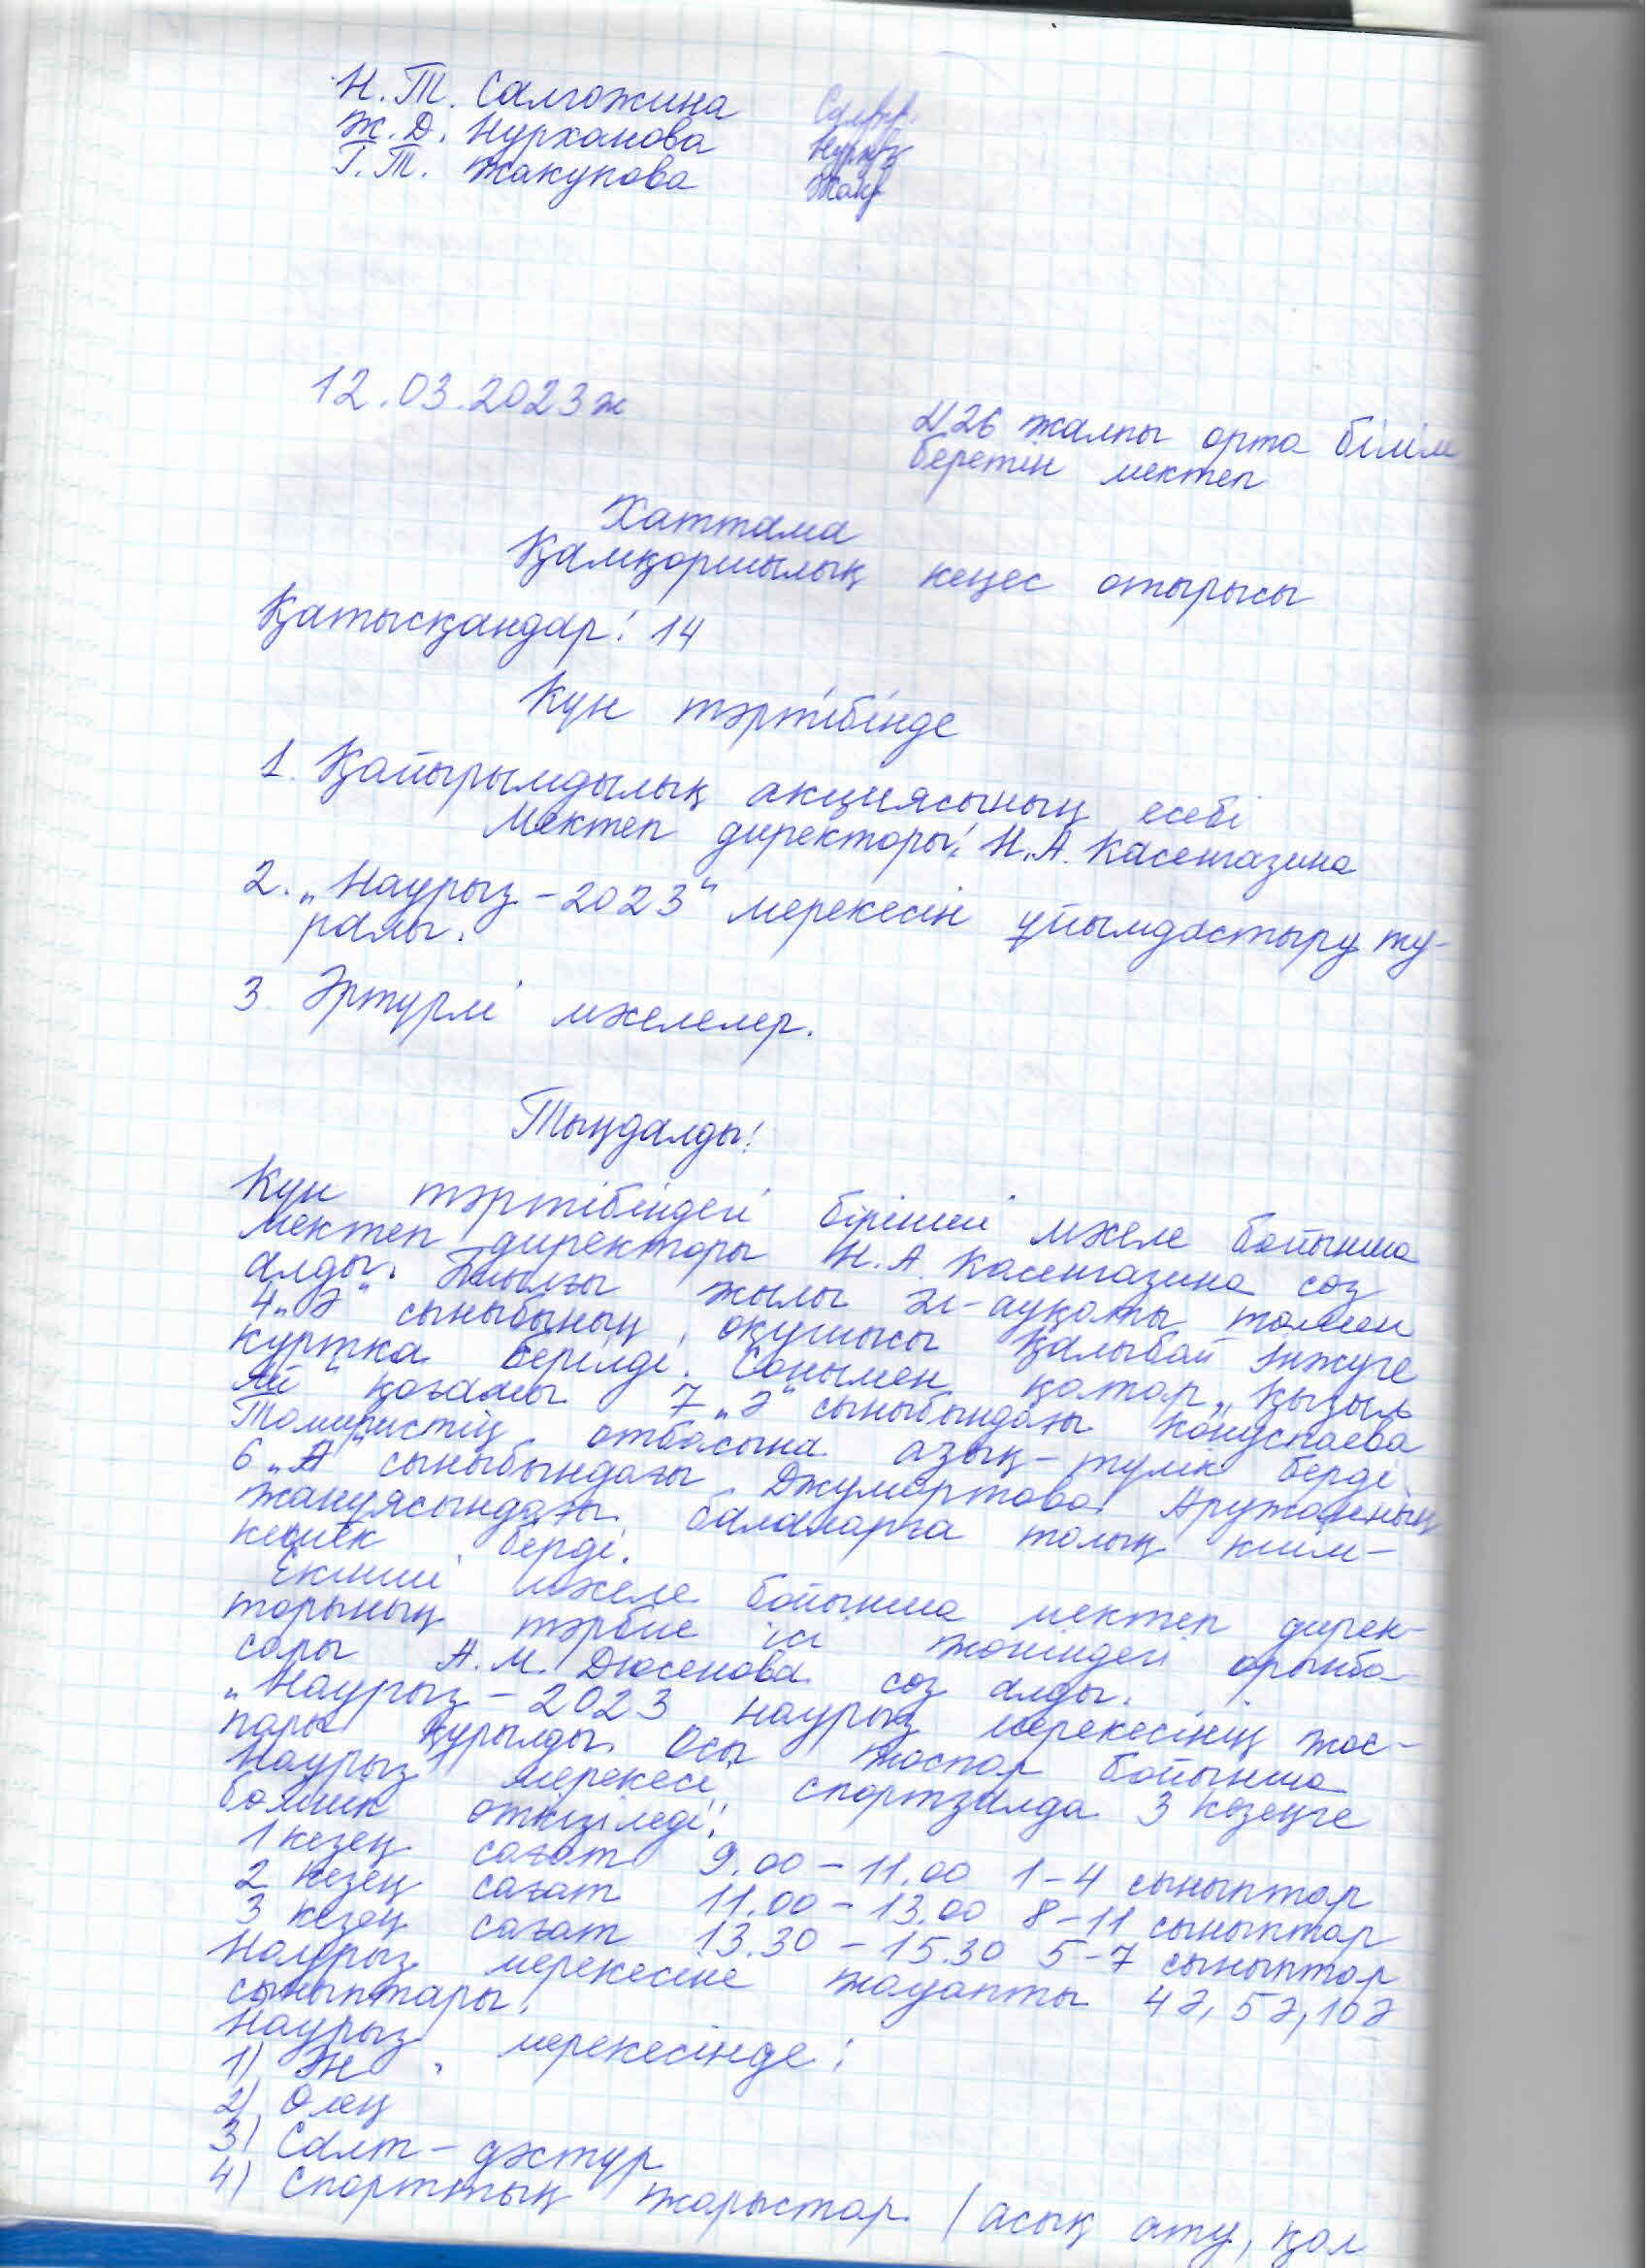 Н.Т. Салгожина
Ж.Д. Нурханова
Г.Т. Жакупова
12.03.2023ж
№26 жалпы орта білім
беретін мектеп
Хаттама
Қамқоршылық кеңес отырысы
Қатысқандар: 14
Күн тәртібінде
1. Қайырымдылық акциясының есебі
Мектеп директоры: Н.А. Касенгазина
2. „Наурыз-2023" мерекесін ұйымдастыру ту-
ралы.
3. Әртүрлі мәселелер.
Тыңдалды:
Күн тәртібіндегі бірінші мәселе бойынша
мектеп директоры Н.А. Касенгазина сөз
алды. Биылғы жылы әл-ауқаты төмен
4„Ә" сыныбының оқушысы Қалыбай Інжуге
куртка берілді. Сонымен қатар „Қызыл
Ай" қоғамы 7„Ә" сыныбындағы Конуспаева
Томиристің отбасына азық-түлік берді.
6„А" сыныбындағы Джумартова Аружанның
жанұясындағы балаларға толық киім-
кешек берді.
Екінші мәселе бойынша мектеп дирек-
торының тәрбие ісі жөніндегі орынба-
сары А.М. Дюсенова сөз алды.
„Наурыз-2023 наурыз мерекесінің жос-
пары құрылды. Осы жоспар бойынша
Наурыз мерекесі спортзалда 3 кезеңге
бөлініп өткізіледі:
1 кезең сағат 9.00-11.00 1-4 сыныптар
2 кезең сағат 11.00-13.00 8-11 сыныптар
3 кезең сағат 13.30-15.30 5-7 сыныптар
Наурыз мерекесіне жауапты 4ә, 5ә, 10ә
сыныптары.
Наурыз мерекесінде:
1) Ән
2) Өлең
3) Салт-дәстүр
4) Спорттық жарыстар (асық ату, қол